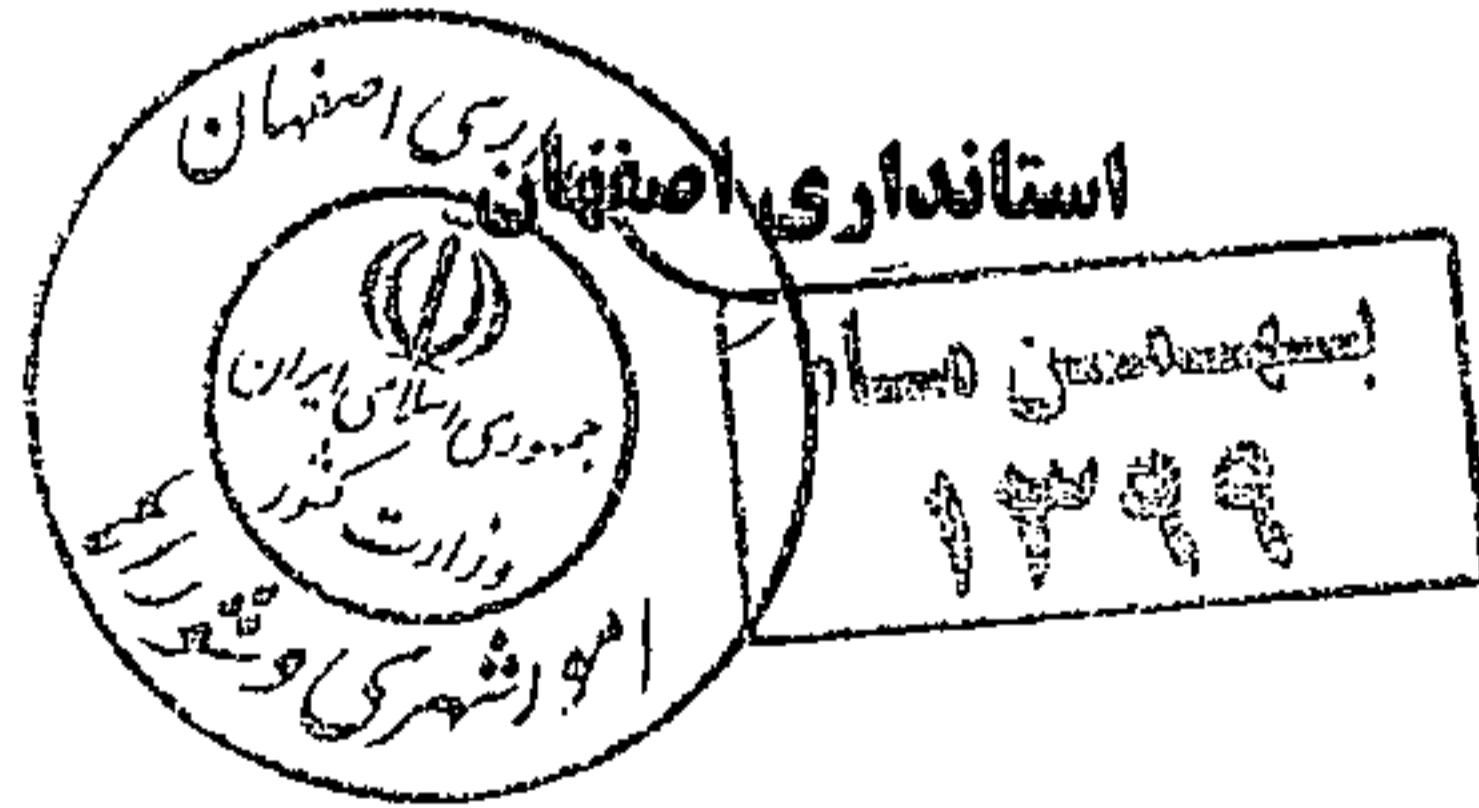 استانداری اصفهان
بهمن ماه
۱۳۶۹
اصفهان
جمهوری اسلامی ایران
وزارت کشور
امور شهری و شوراها